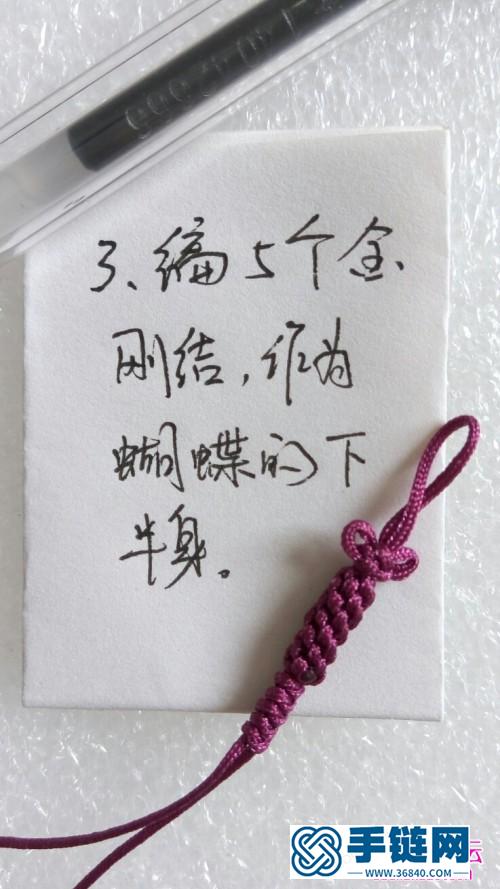 3、编5个金
刚结,作为
蝴蝶的下
半身。
云
手链网
WWW.36840.COM